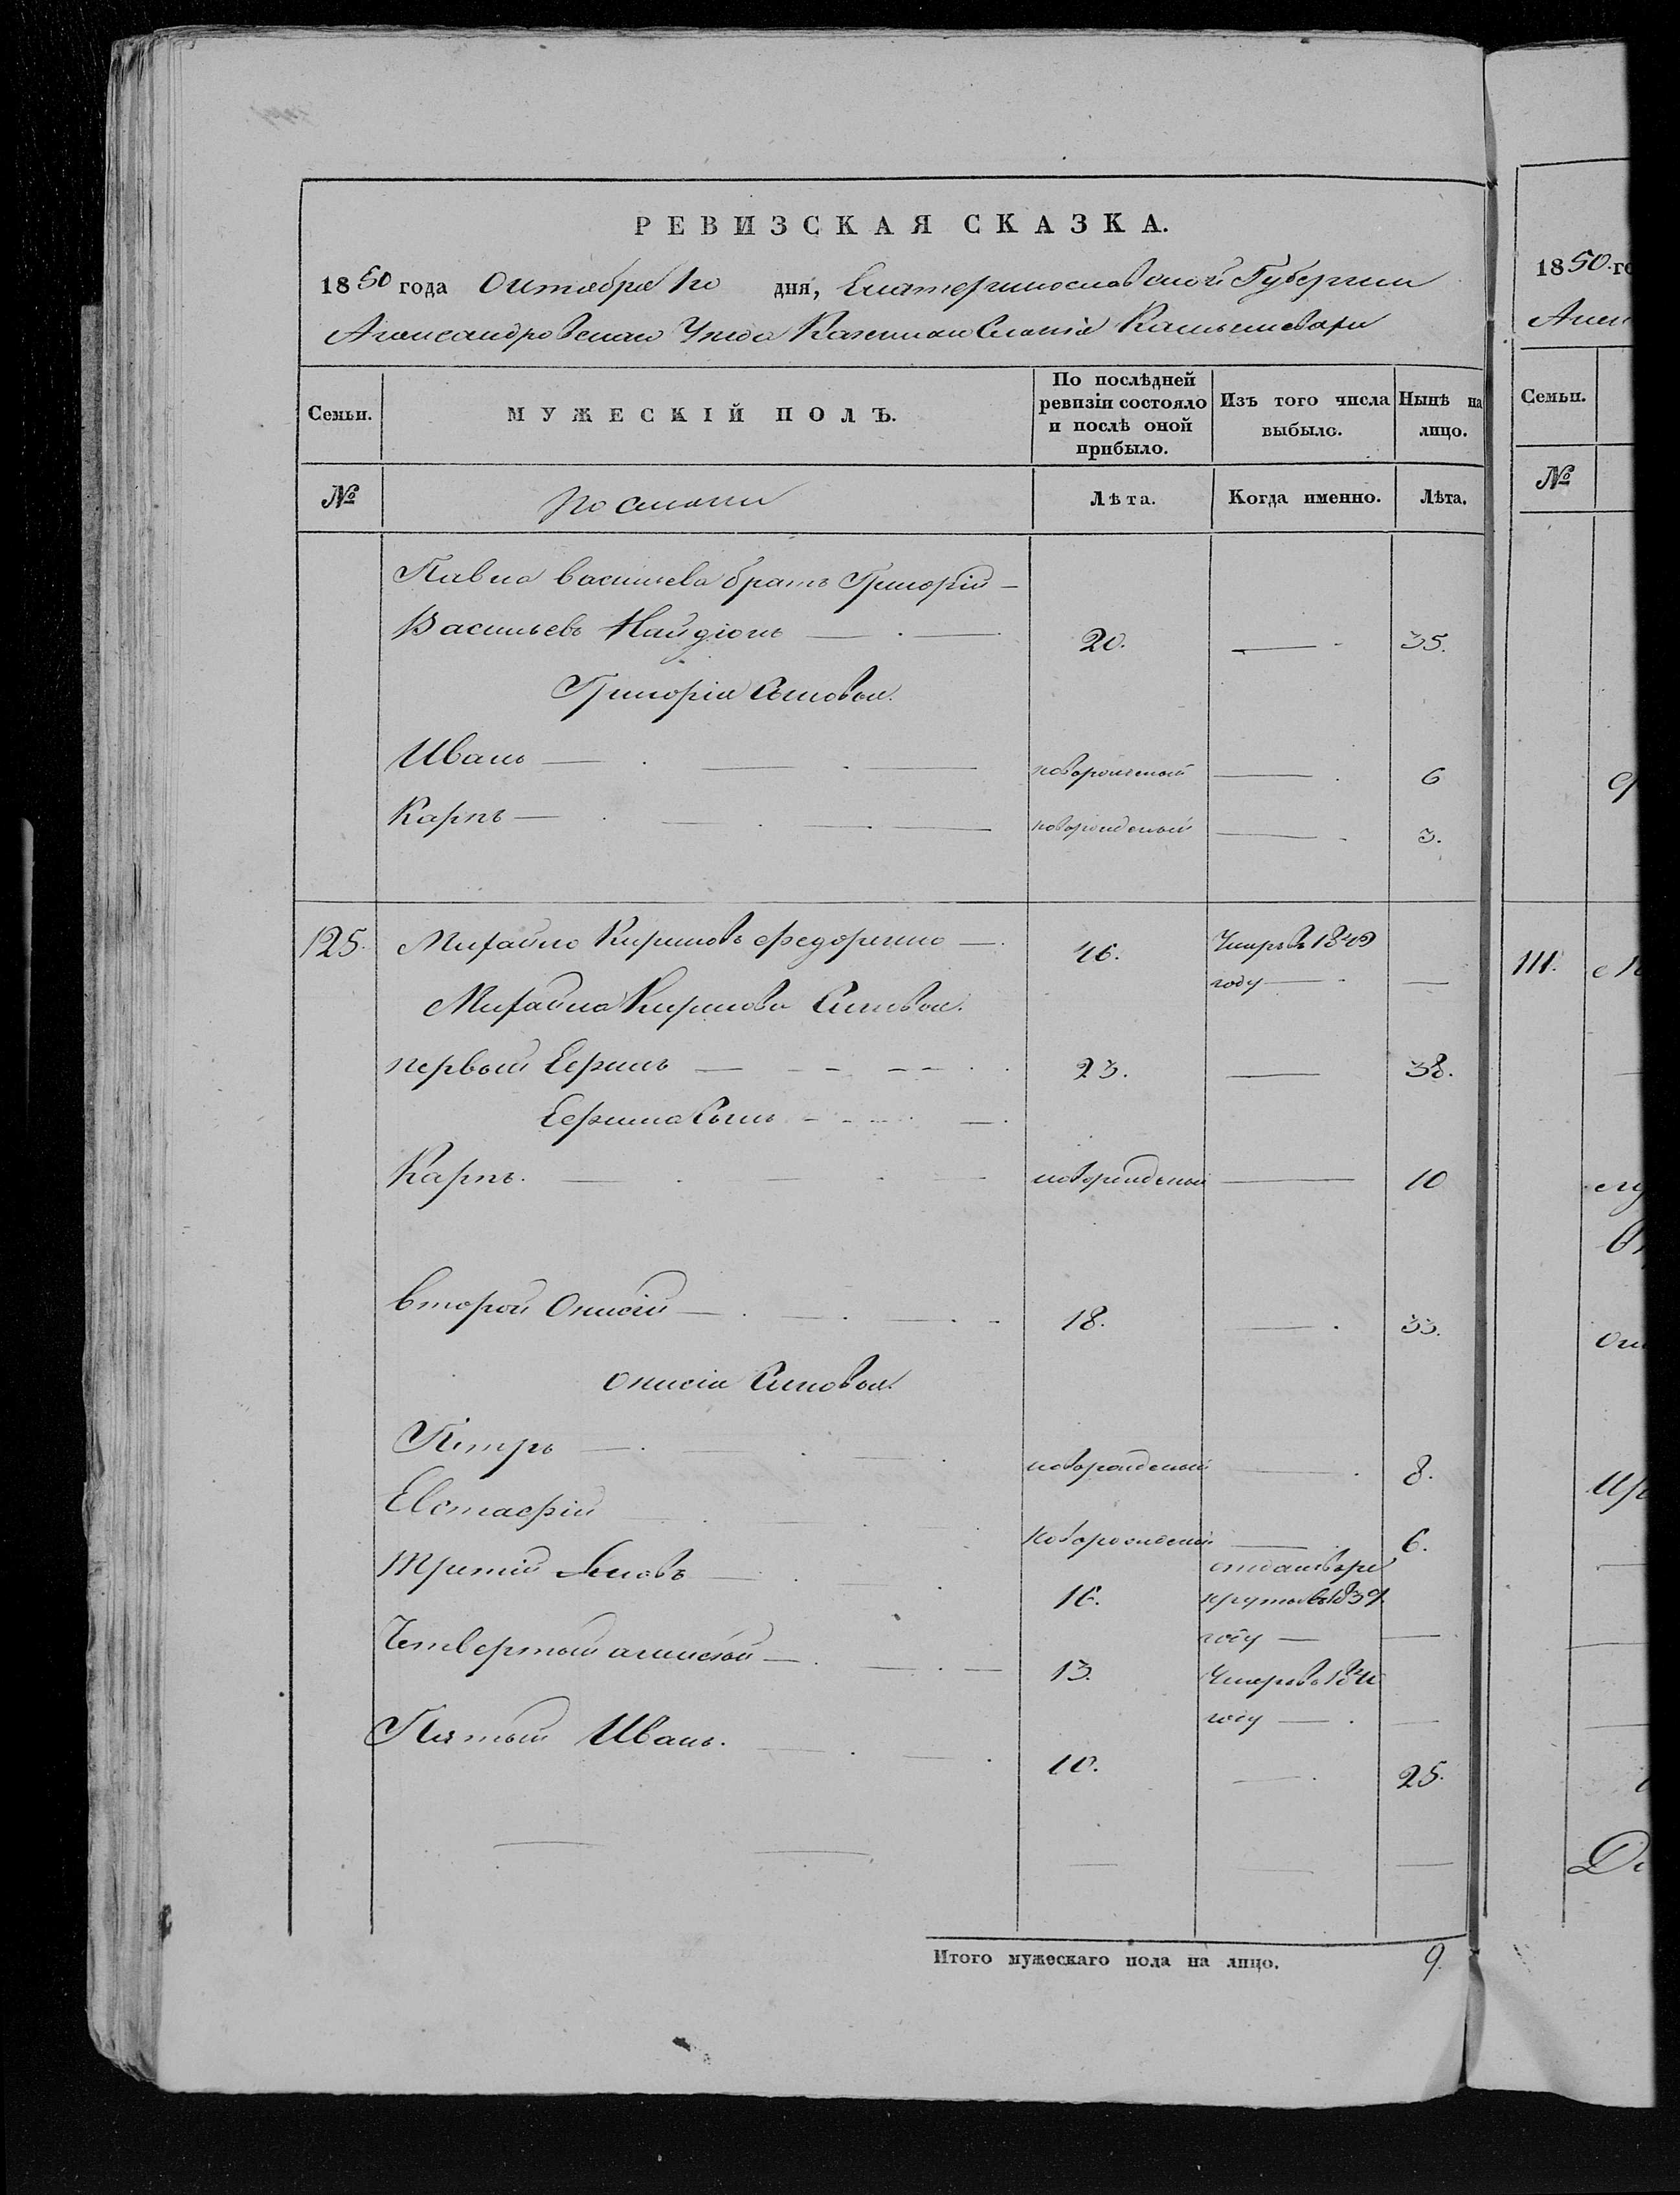 РЕВИЗСКАЯ СКАЗКА.
1850 года Октября 10 дня, Екатеринославской Губернии
Александровскаго Уезда Казеннаго Селенія Камышевахи
Семьи.
МУЖЕСКІЙ ПОЛЪ.
По послѣдней ревизіи состояло и послѣ оной прибыло.
Изъ того числа выбыло.
Нынѣ на лицо.
№
Лѣта.
Когда именно.
Лѣта.
Павла Васильева братъ Григорій
Васильевъ Найдіонъ 20. 35.
Григорія Сыновья.
Иванъ новорожденый 6
Карпъ новорожденый 3.
125. Михайло Кириловъ Федоренко 46. Умеръ въ 1849
году
Михайла Кирилова Сыновья.
первый Ефимъ 23. 38.
Ефима Сынъ
Карпъ. новорожденый 10
второй Онисій 18. 33.
Онисія Сыновья
Петръ новорожденый 8.
Евстафій новорожденый 6.
третій Яковъ 16. отданъ въ ре
круты въ 1839
году
Четвертый Алексей 13. Умеръ въ
году
Пятый Иванъ. 10. 25.
Итого мужескаго пола на лицо. 9.
1850 го
Алек
Семьи.
№
111.